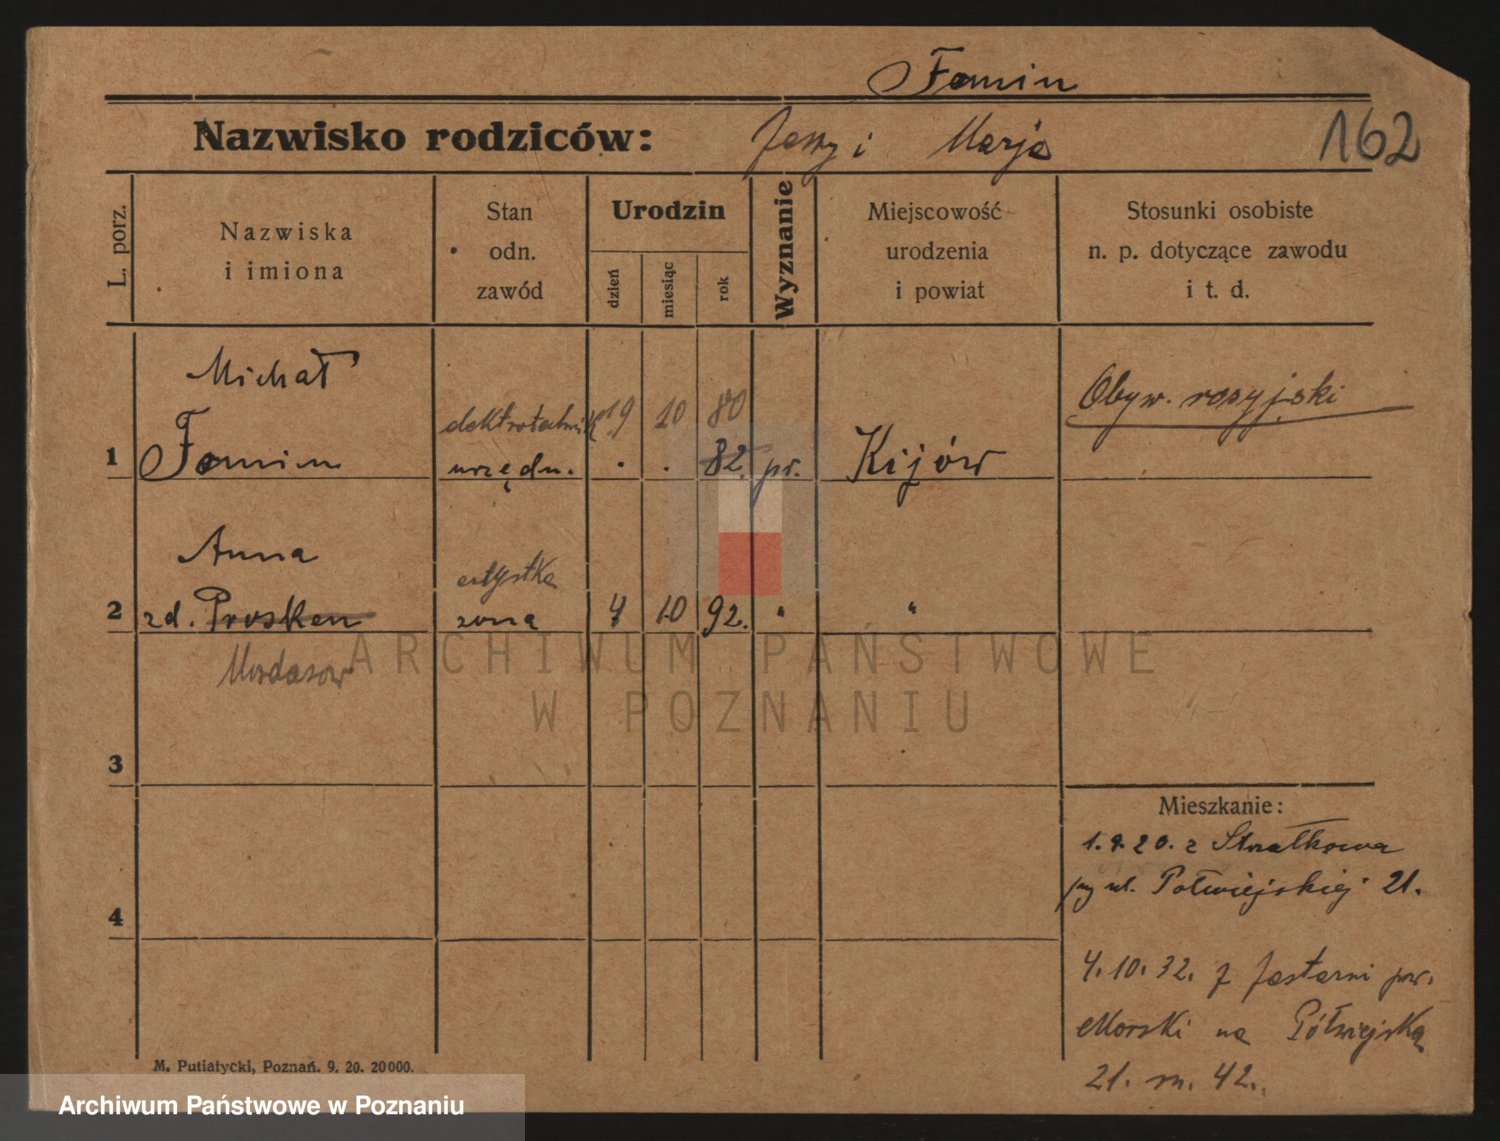 Fomin
Nazwisko rodziców: Jerzy i Marja 162
L. porz.
Nazwiska
i imiona
Stan
odn.
zawód
Urodzin
dzień
miesiąc
rok
Wyznanie
Miejscowość
urodzenia
i powiat
Stosunki osobiste
n. p. dotyczące zawodu
i t. d.
Michał
1 Fomin
elektrotechnik 19 10 80
urzędn. . . 82. pr.
Kijów
Obyw. rosyjski
Anna
2 zd. Prosken
Mordasow
artystka
żona 4 10 92. " "
3
4
Mieszkanie:
1.9.20. z Strzałkowa
przy ul. Półwiejskiej 21.
4.10.32. z Jastarni pow.
Morski na Półwiejską
21. m. 42.
M. Putiatycki, Poznań. 9. 20. 20000.
ARCHIWUM PAŃSTWOWE
W POZNANIU
Archiwum Państwowe w Poznaniu